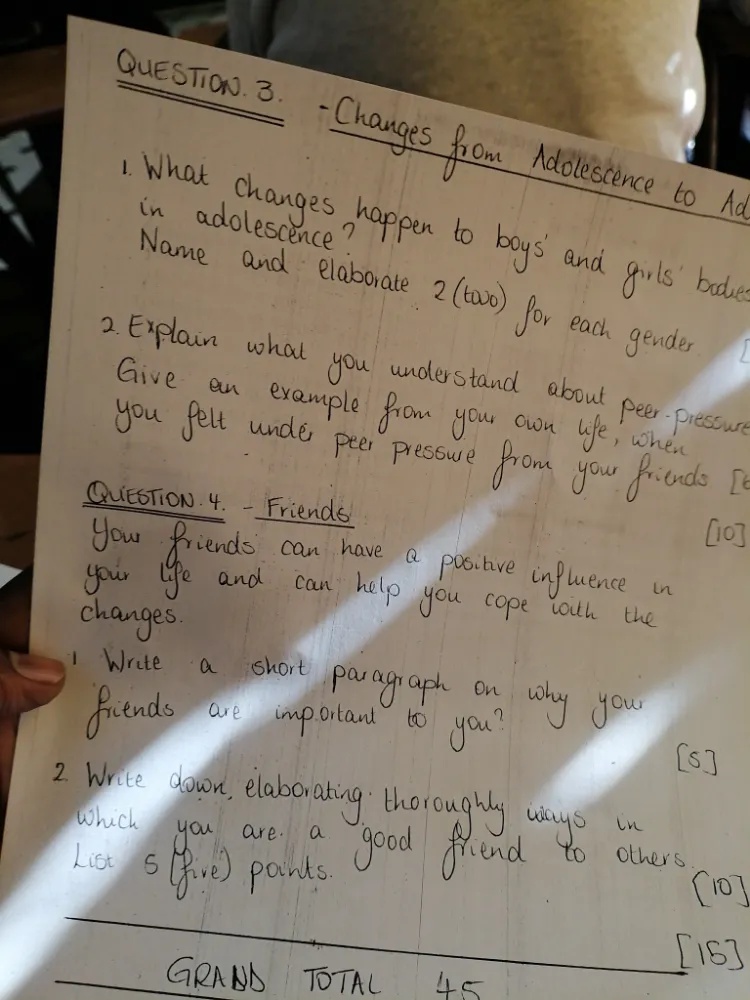 QUESTION. 3. - Changes from Adolescence to Ad
1. What changes happen to boys' and girls' bodies
in adolescence?
Name and elaborate 2 (two) for each gender. [
2. Explain what you understand about peer-pressure
Give an example from your own life, when
you felt under peer pressure from your friends [6
[10]
QUESTION. 4. - Friends
Your friends can have a positive influence in
your life and can help you cope with the
changes.
1 Write a short paragraph on why your
friends are important to you?
[5]
2. Write down, elaborating thoroughly ways in
which you are a good friend to others.
List 5 (five) points.
[10]
[15]
GRAND TOTAL 45